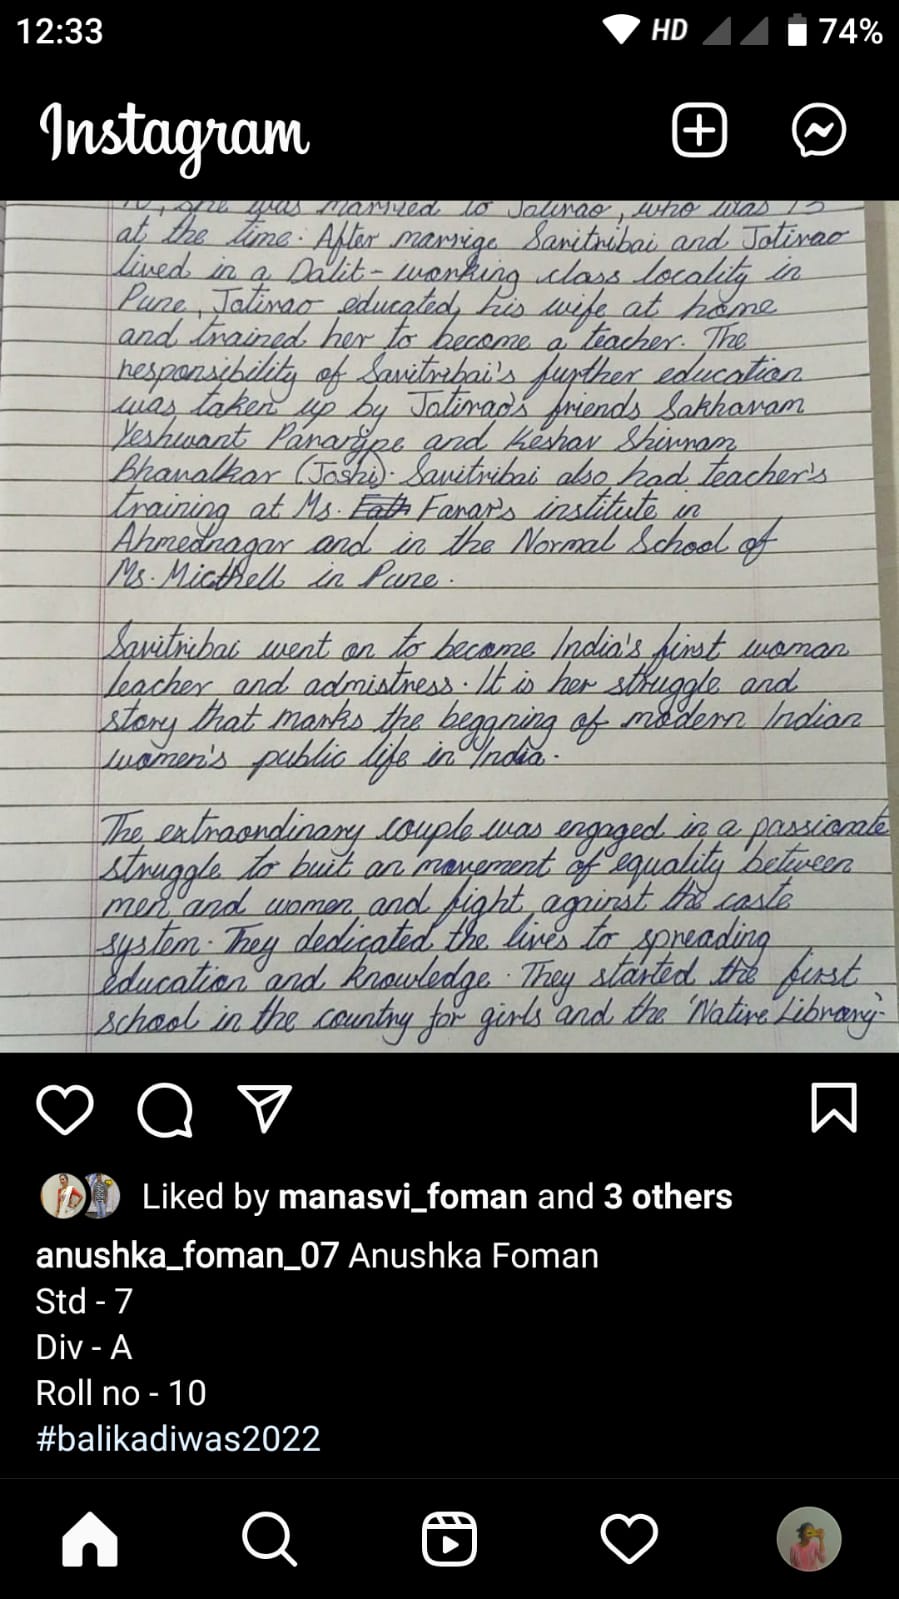 12:33
HD
74%
Instagram
10, she was married to Jotirao, who was 13
at the time. After marrige Savitribai and Jotirao
lived in a Dalit-working class locality in
Pune, Jotirao educated his wife at home
and trained her to become a teacher. The
responsibility of Savitribai's further education
was taken up by Jotirao's friends Sakharam
Yeshwant Paranjpe and Keshav Shivram
Bhavalkar (Joshi). Savitribai also had teacher's
training at Ms. Farar's institute in
Ahmednagar and in the Normal School of
Ms. Micthell in Pune.
Savitribai went on to become India's first woman
teacher and admistress. It is her struggle and
story that marks the beggning of modern Indian
women's public life in India.
The extraordinary couple was engaged in a passionate
struggle to buit an movement of equality between
men and women and fight against the caste
system. They dedicated the lives to spreading
education and knowledge. They started the first
school in the country for girls and the 'Native Library'
Liked by manasvi_foman and 3 others
anushka_foman_07 Anushka Foman
Std - 7
Div - A
Roll no - 10
#balikadiwas2022